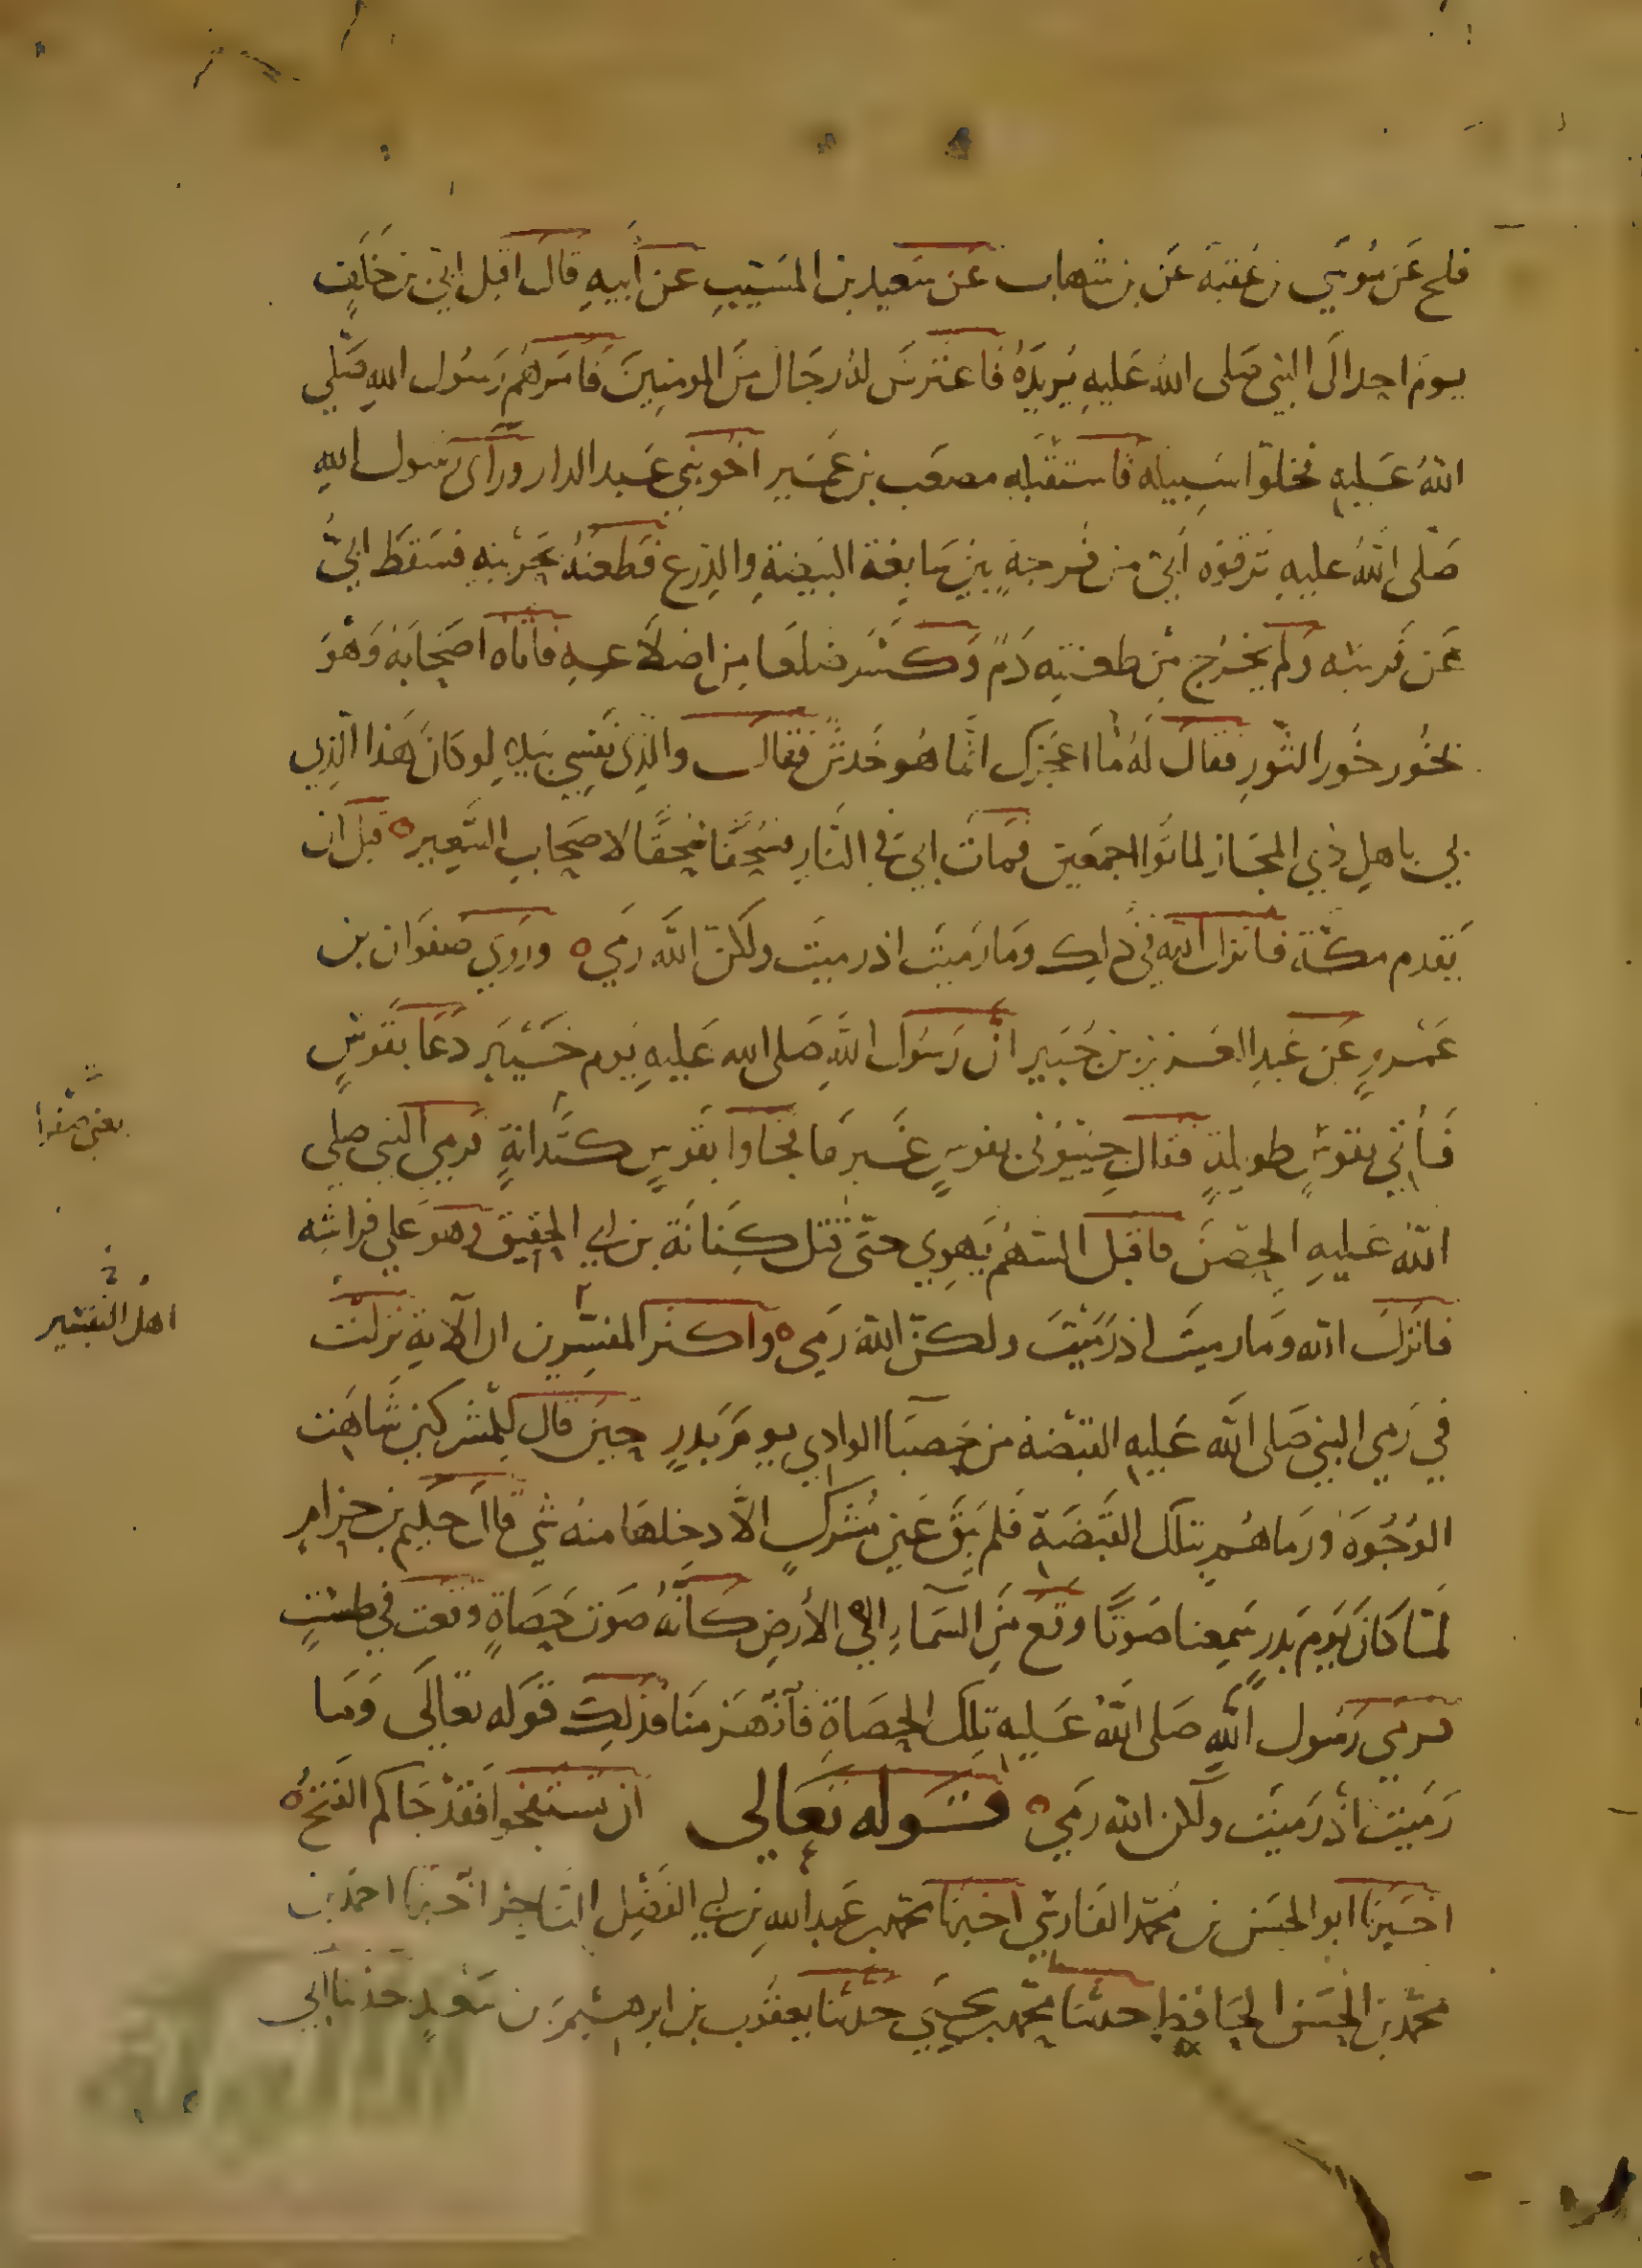 فلح عَن مُوسَي بن عُقبَة عَن بن شهاب عَن سَعيد بن المسَيّبِ عَن أبيهِ قالَ اقبل ابيّ بن خَلَفٍ
يومَ احد الَى النبي صَلى اللهُ عَليهِ يُريدُهُ فاعترضَ لهُ رجَال مِنَ المومنِينَ فَامَرَهُم رَسُول اللهِ صَلّي
اللهُ عَليهِ فخلوّا سَبِيله فاستقبَله مصعَب بن عمَيرٍ اخُو بني عَبد الدار ورَأى رسُول اللهِ
صَلّى اللهُ عليهِ تَرقوَه أبيّ من فُرجةٍ بَينَ سَابِغة البَيضةِ والدِرع فطعنَهُ بحَربتِهِ فسَقط ابيٌّ
عَن فَرسِه ولم يَخرُج مِن طعنتِه دَمٌ وَكسَر ضلعَا مِن اضلاعهِ فاتاه اصحَابَهُ وَهْوَ
يخُور خُوَر الثّورِ فقالَ لَهُ ما اعجَزك انّما هُو خَدشٌ فقالَ والذِى نفسِي بيدِهِ لو كانَ هَذا الذِي
بي باهلِ ذِي المجَازِ لماتُوا اجمَعين فمَاتَ ابيّ في النّارِ فسُحقًا فسُحقًا لاصحَابِ السَّعِير ه قبل ان
يَقدم مكّة فانزلَ اللهُ في ذلك وَمَا رَميتَ اذ رميتَ ولكنّ اللهَ رَمي ه ورَوَي صفوَان بن
عَمْرٍو عَن عَبدِ العَزيز بن جُبَيرٍ انّ رَسُول اللهِ صَلى الله عَليهِ يَوم خَيبَر دَعَا بقَوسٍ
فَأتي بقوسٍ طويلةٍ فقالَ جِيئُوني بقوسٍ غَير هَا فجَاوا بقَوسٍ كَبْدانةٍ فرمي النبي صلي
اللهُ عَليهِ الحِصْن فاقبل السّهمُ يَهوِي حتّى قتل كِنَانَة بن ابي الحقيق وهوَ علي فراشِه
فانزلَ الله ومَا رميتَ اذ رَمَيْتَ ولكنّ اللهَ رَمي ه واكثر المفسِّرين ان الآية نزلَت
في رَمي النبي صَلى الله عَليهِ القبْضة من حَصبَا الوادِي يومَ بَدرٍ حِينَ قال لِلمُشركين شَاهَت
الوُجُوهُ ورَماهُم بتلك القَبضَة فَلم يَبقَ عَين مُشركٍ الاَّ دخلهَا منهُ شي قالَ حَكِيم بن حِزامٍ
لمّا كانَ يَومَ بدرٍ سَمِعنا صَوتًا وقعَ مِنَ السّماءِ الي الأرضِ كأنّهُ صَوت حَصَاةٍ وقعَت في طستٍ
فرمي رسُول اللهِ صَلى اللهُ عَليهِ تلكَ الحصَاةِ فانْهزمنَا فذلك قَوله تعَالَى وَمَا
رَمَيتَ اذ رَميتَ ولكن الله رَمي ه قَوله تَعَالي ان تستفتحُوا فقَد جَاكم الفَتحُ ه
اخبَرنا ابو الحسَن بن مُحمّد الفارسيّ اخبرنا محمّد بن عَبد اللهِ بن ابي الفضل التّاجر اخبرنا احمَد بن
محمّد بن الحسَن الحَافِظ حدثنا محمّد بن يحيَي حدّثنا يعقوب بن ابرهيم بن سَعدٍ حدّثنا ابي
يعني صَفوا
اهلُ التفسِير